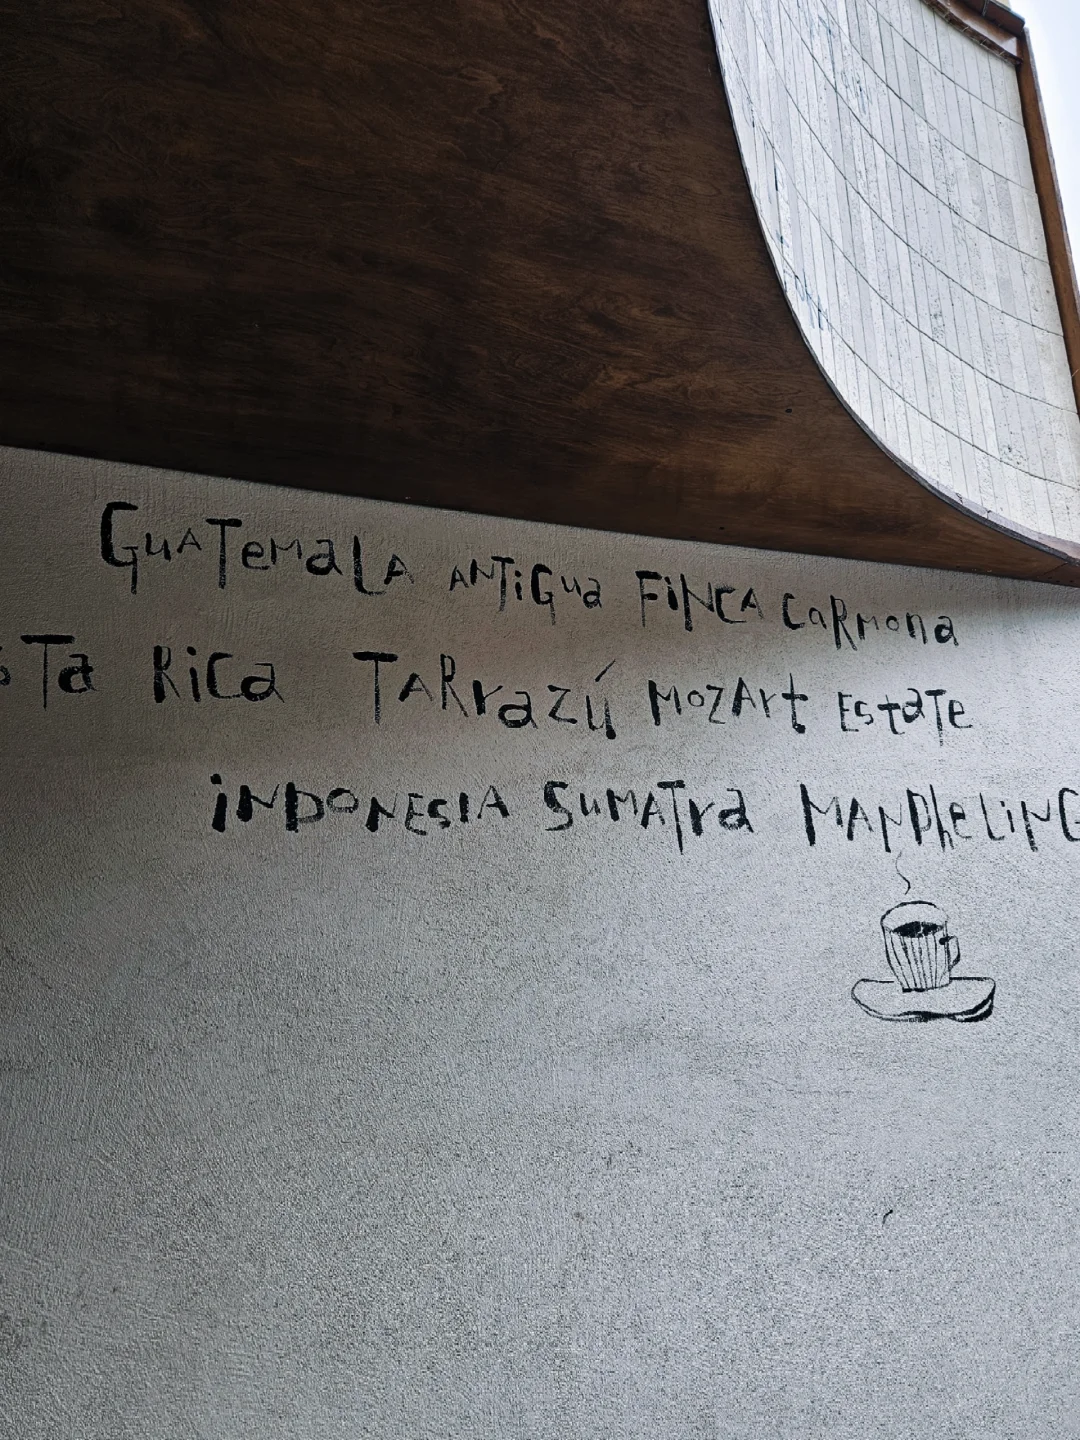 GuATemaLA ANTiGua FiNCA CaRMona
sTa RiCa TARrazú MozArt EstaTe
iNDONESIA SuMATra MANDheLiNG